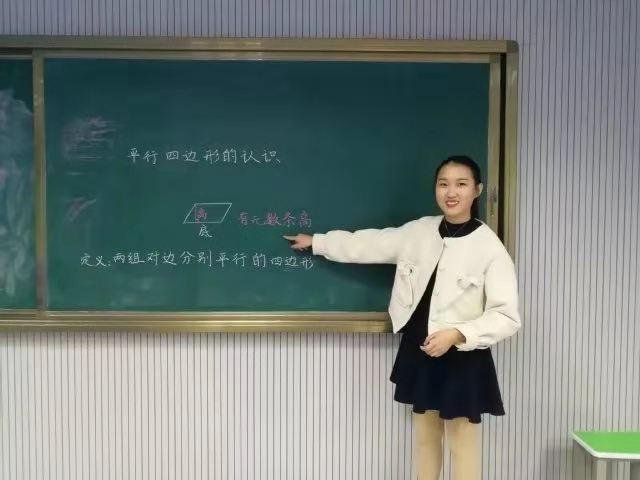 平行四边形的认识
高
有无数条高
底
定义:两组对边分别平行的四边形